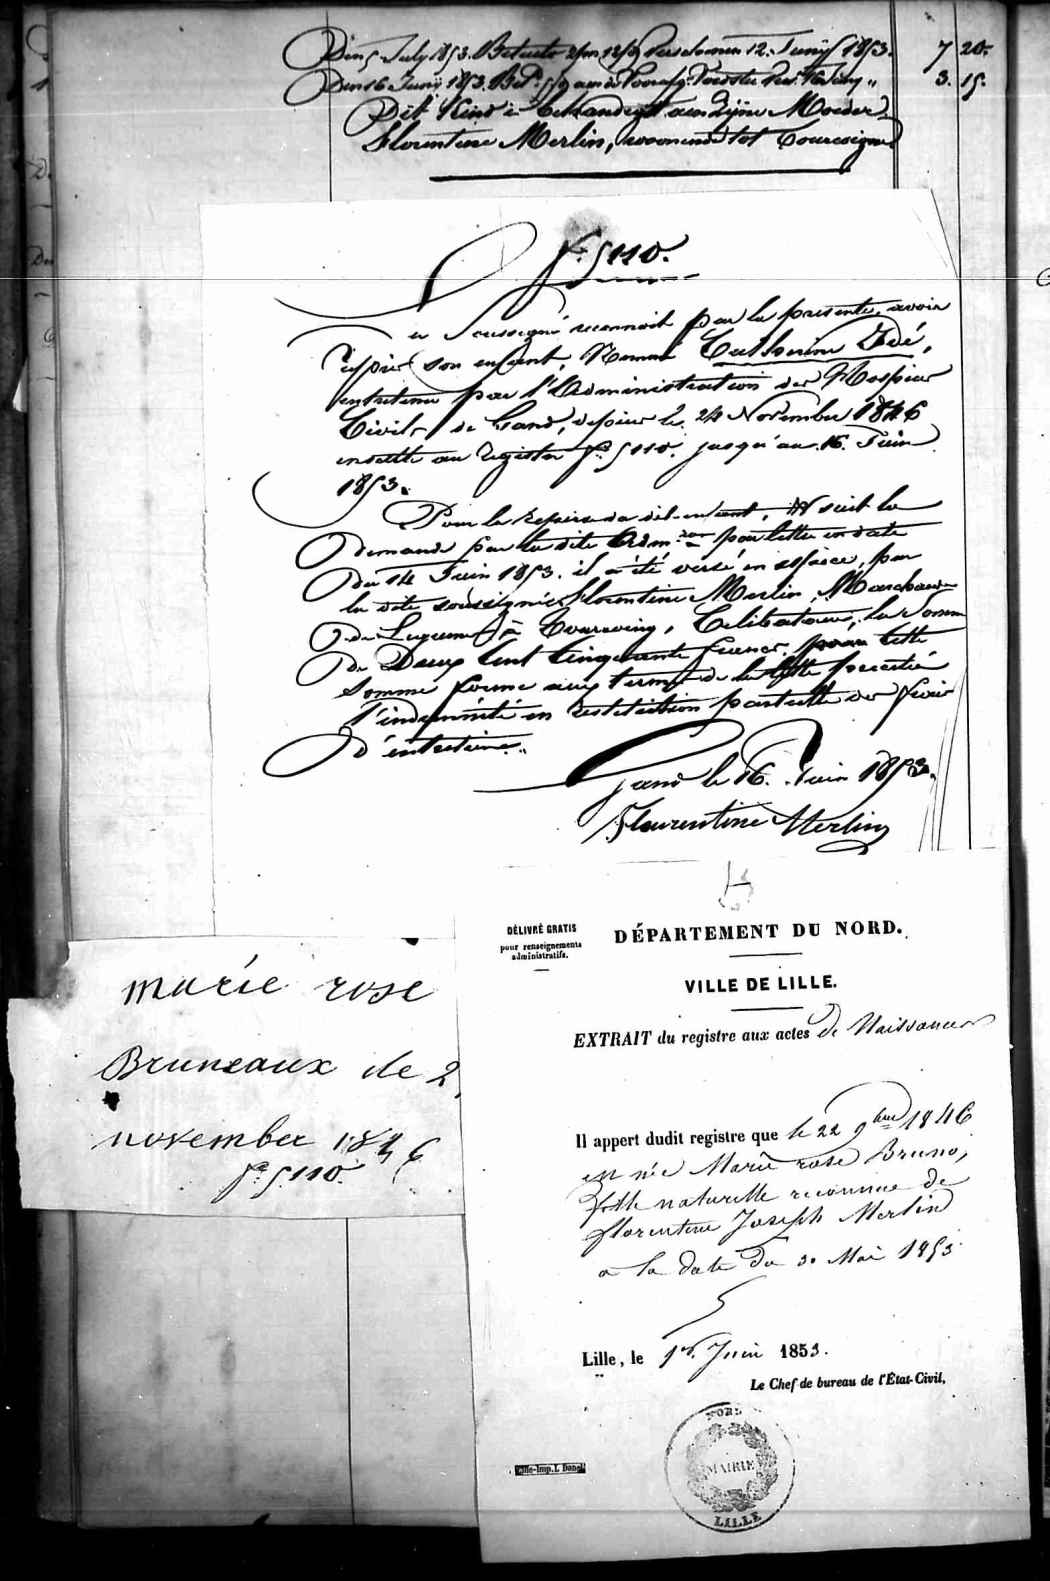 Den 5 July 1853. Betaelt 12. Junij 1853. 7 20
Den 16 Junij 1853. 3. 15.
Dit Kind is behandigd aen zijne Moeder
Florentine Merlin, woonende tot Tourcoigne
N.° 5110.
La Soussigné reconnait par la présente, avoir
repris son enfant, Nommé Catherine Idé,
entretenu par l'Administration des Hospices
Civils de Gand, depuis le 24 November 1846
inscrite au registre N.° 5110. jusqu'au 16. Juin
1853.
Pour la reprise du dit enfant, et suit la
demande par la dite Adm.ion par lettre en date
du 14 Juin 1853. il a été versé en espèce, par
la dite soussignée Florentine Merlin, Marchande
de Legumes à Tourcoing, Celibataire, la Somme
de Deux Cent Cinquante francs, pour cette
Somme forme aux termes de la lettre precitée
l'indemnité en restitution partielle des frais
d'entretien.
Gand le 16. Juin 1853.
Florentine Merlin
marie rose
Bruneaux de 2
november 1846
N.° 5110.
DÉLIVRÉ GRATIS
pour renseignements
administratifs.
DÉPARTEMENT DU NORD.
VILLE DE LILLE.
EXTRAIT du registre aux actes de Naissances
Il appert dudit registre que le 22 9bre 1846
est née Marie rose Bruno,
fille naturelle reconnue de
florentine Joseph Merlin
a la date du 30 Mai 1853
Lille, le 1er Juin 1853.
Le Chef de bureau de l'État-Civil,
Lille-Imp. L. Danel
NORD
MAIRIE
LILLE